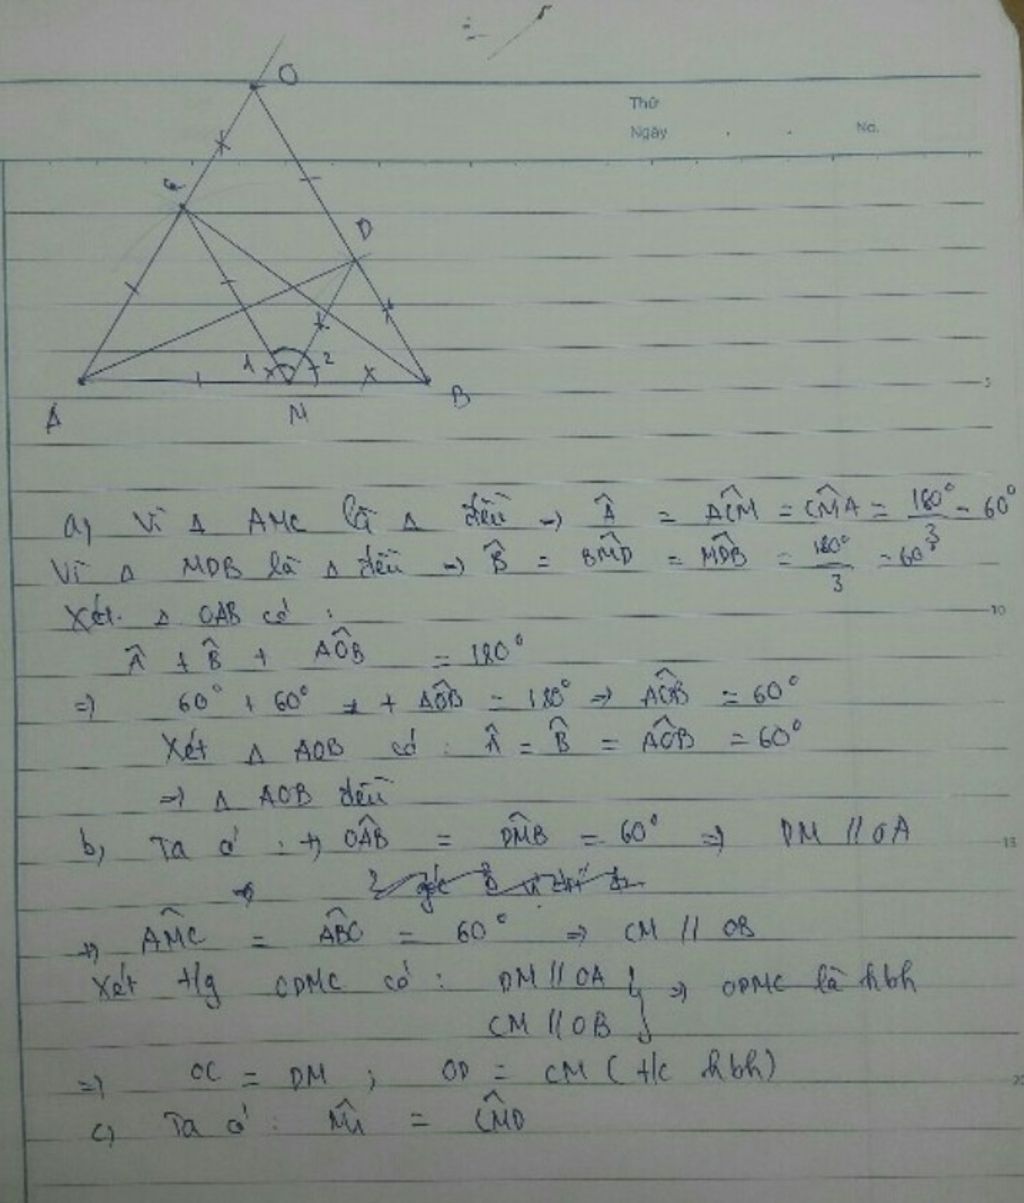 O
Thứ
Ngày No.
C
D
1 2
5
A M B
a, Vì Δ AMC là Δ đều => Â = AĈM = CM̂A = 180°/3 = 60°
Vì Δ MDB là Δ đều => B̂ = BM̂D = MD̂B = 180°/3 = 60°
Xét Δ OAB có :
10
Â + B̂ + AÔB = 180°
=> 60° + 60° + AÔB = 180° => AÔB = 60°
Xét Δ AOB có : Â = B̂ = AÔB = 60°
=> Δ AOB đều
b, Ta có : +, OÂB = DM̂B = 60° => DM // OA
15
+, AM̂C = AB̂O = 60° => CM // OB
Xét t/g ODMC có : DM // OA } => ODMC là hbh
CM // OB
=> OC = DM ; OD = CM ( t/c hbh)
c, Ta có : M̂1 = CM̂D